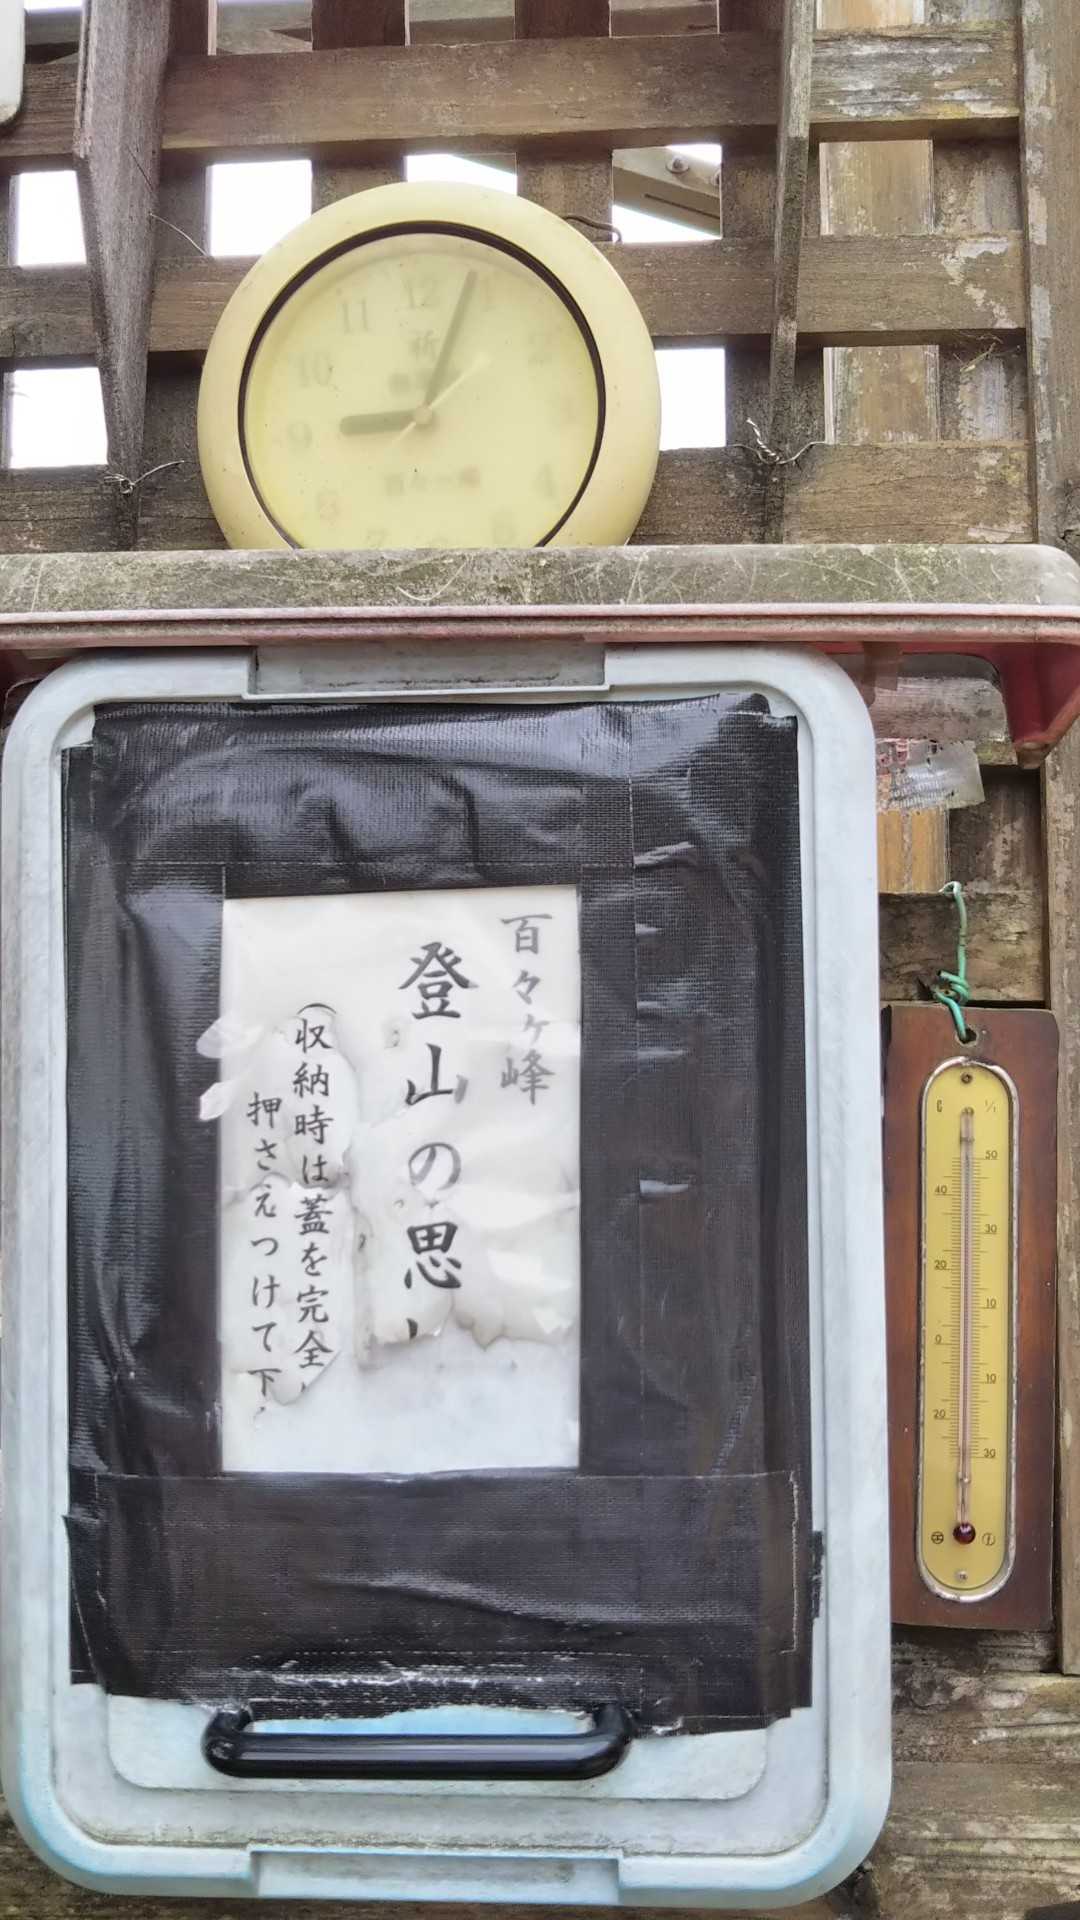 11 12 1
祈
10
9
4
8
7
百々ヶ峰
登山の思
(収納時は蓋を完全
押さえつけて下
C
50
40
30
20
10
0
10
20
30